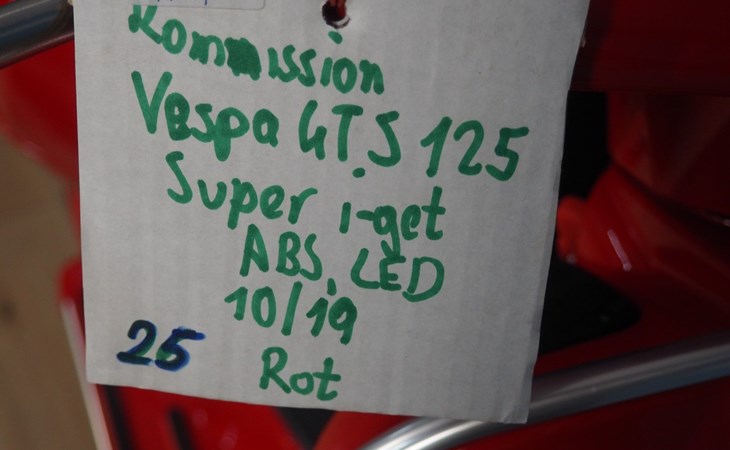 Kommission
Vespa GTS 125
Super i-get
ABS, LED
10/19
25
Rot